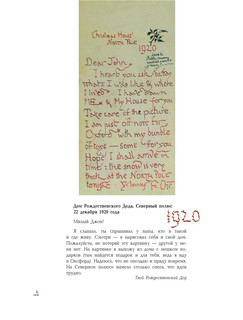 Christmas House
North Pole
1920
Dear John,
I heard you ask daddy
what I was like & where
I lived. I have drawn
ME & My House for you
Take care of the picture.
I am just off now for
Oxford with my bundle
of toys – some for you
Hope I shall arrive in
time: the snow is very
thick at the NORTH POLE
tonight. Yr loving Fr. Chr.
Дом Рождественского Деда, Северный полюс
22 декабря 1920 года
1920
Милый Джон!
Я слышал, ты спрашивал у папы, кто я такой
и где живу. Смотри — я нарисовал себя и свой дом.
Пожалуйста, не потеряй эту картинку — другой у ме-
ня нет. На картинке я выхожу из дома с мешком по-
дарков (там найдется подарок и для тебя, ведь я иду
в Оксфорд). Надеюсь, что не опоздаю и приду вовремя.
На Северном полюсе намело столько снега, что идти
трудно.
Твой Рождественский Дед
6